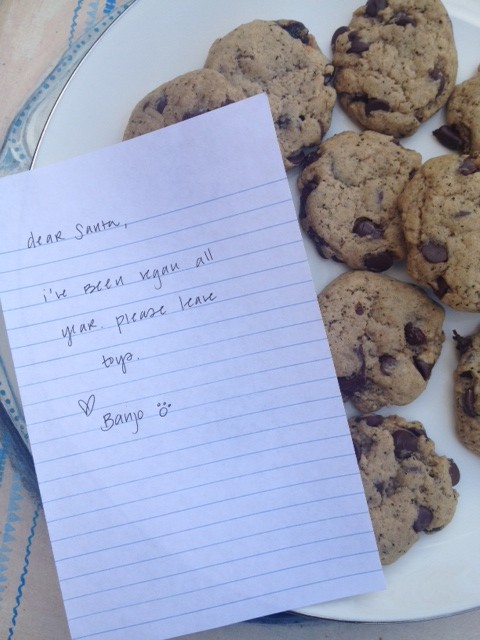 dear Santa,
i've been vegan all
year. please leave
toys.
♡
Banjo